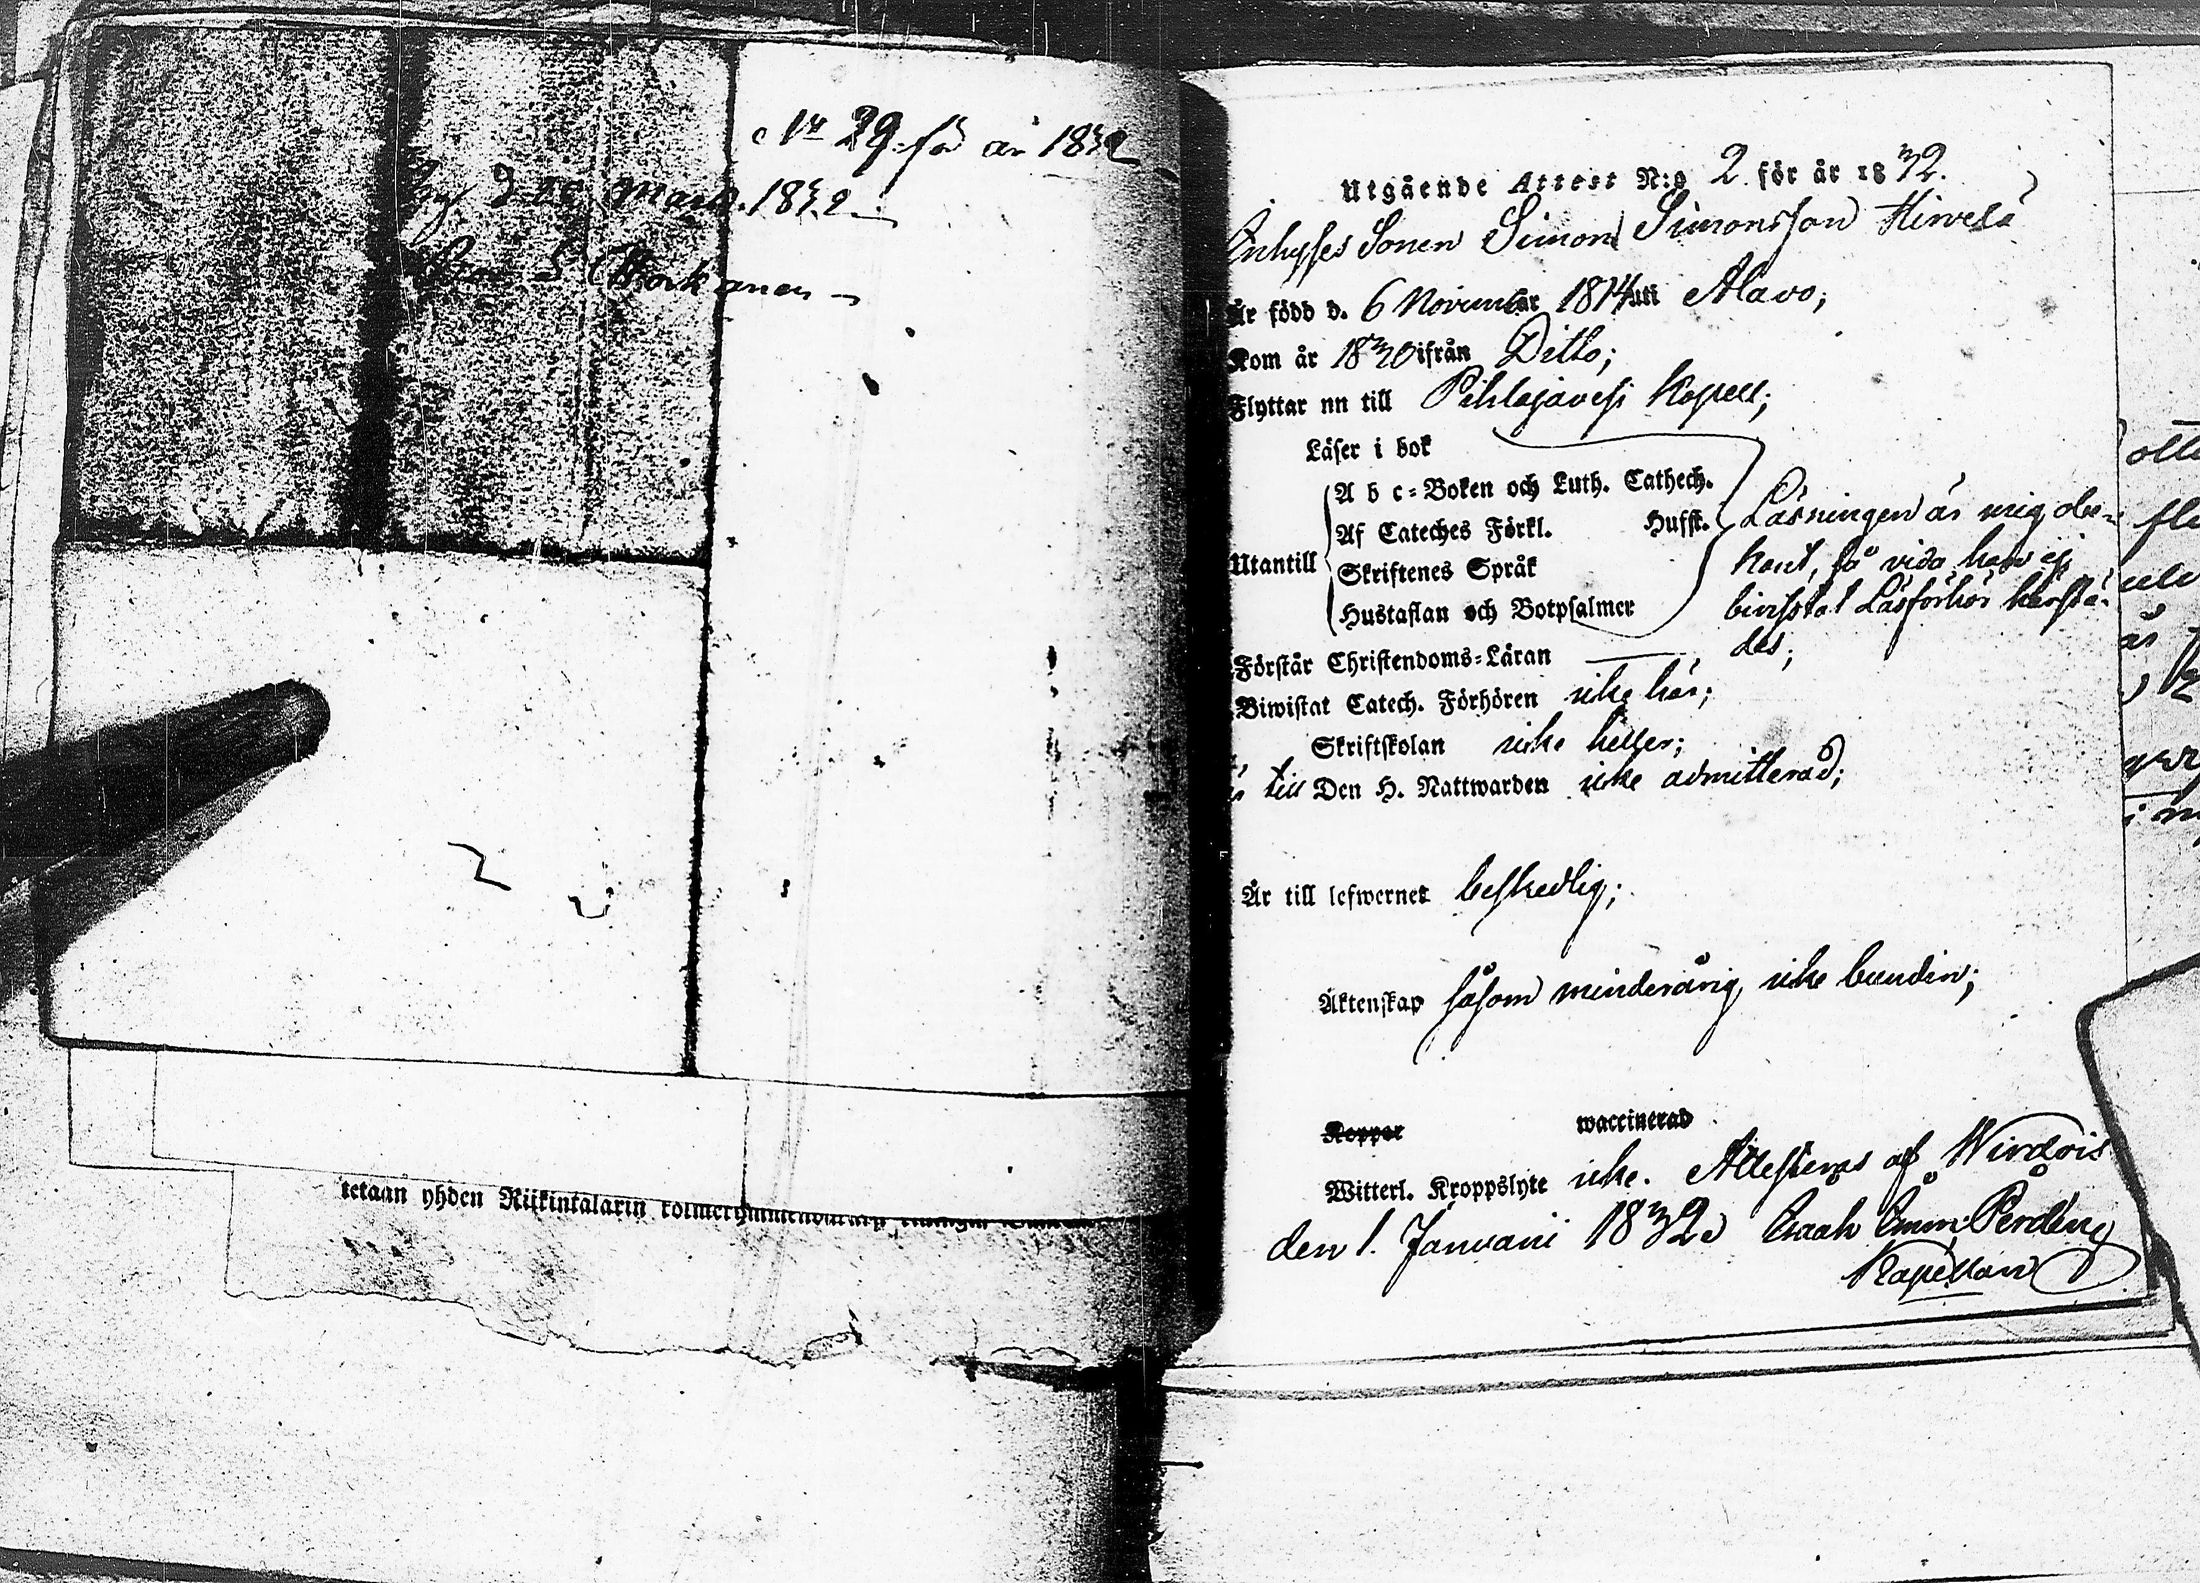 Nr 29 för år 1832
Mars. 1832.
tetaan yhden Riikintalarin
Utgående Attest N:o 2 för år 1832.
Inhyses Sonen Simon Simonsson Hirvelä
Är född d. 6 November 1814 uti Alavo;
Kom år 1830 ifrån Ditto;
Flyttar nu till Pihlajavesi Kapell;
Läser i bok
A b c-Boken och Luth. Cathech.
Af Cateches Förkl. Hufst.
Utantill
Skriftenes Språk
Hustaflan och Botpsalmer
Läsningen är mig obe-
kant, så vida han ej
bivistat Läsförhör härstä-
des;
Förstår Christendoms-Läran
Biwistat Catech. Förhören icke här;
Skriftskolan icke heller;
till Den H. Nattwarden icke admitterad;
Är till lefwernet beskedlig;
Äktenskap såsom minderårig icke bunden;
Koppor waccinerad
Witterl. Kroppslyte icke. Attesteras af Wirdois
den 1. Januari 1832 Isaak Emm. Perdén
Kapellan